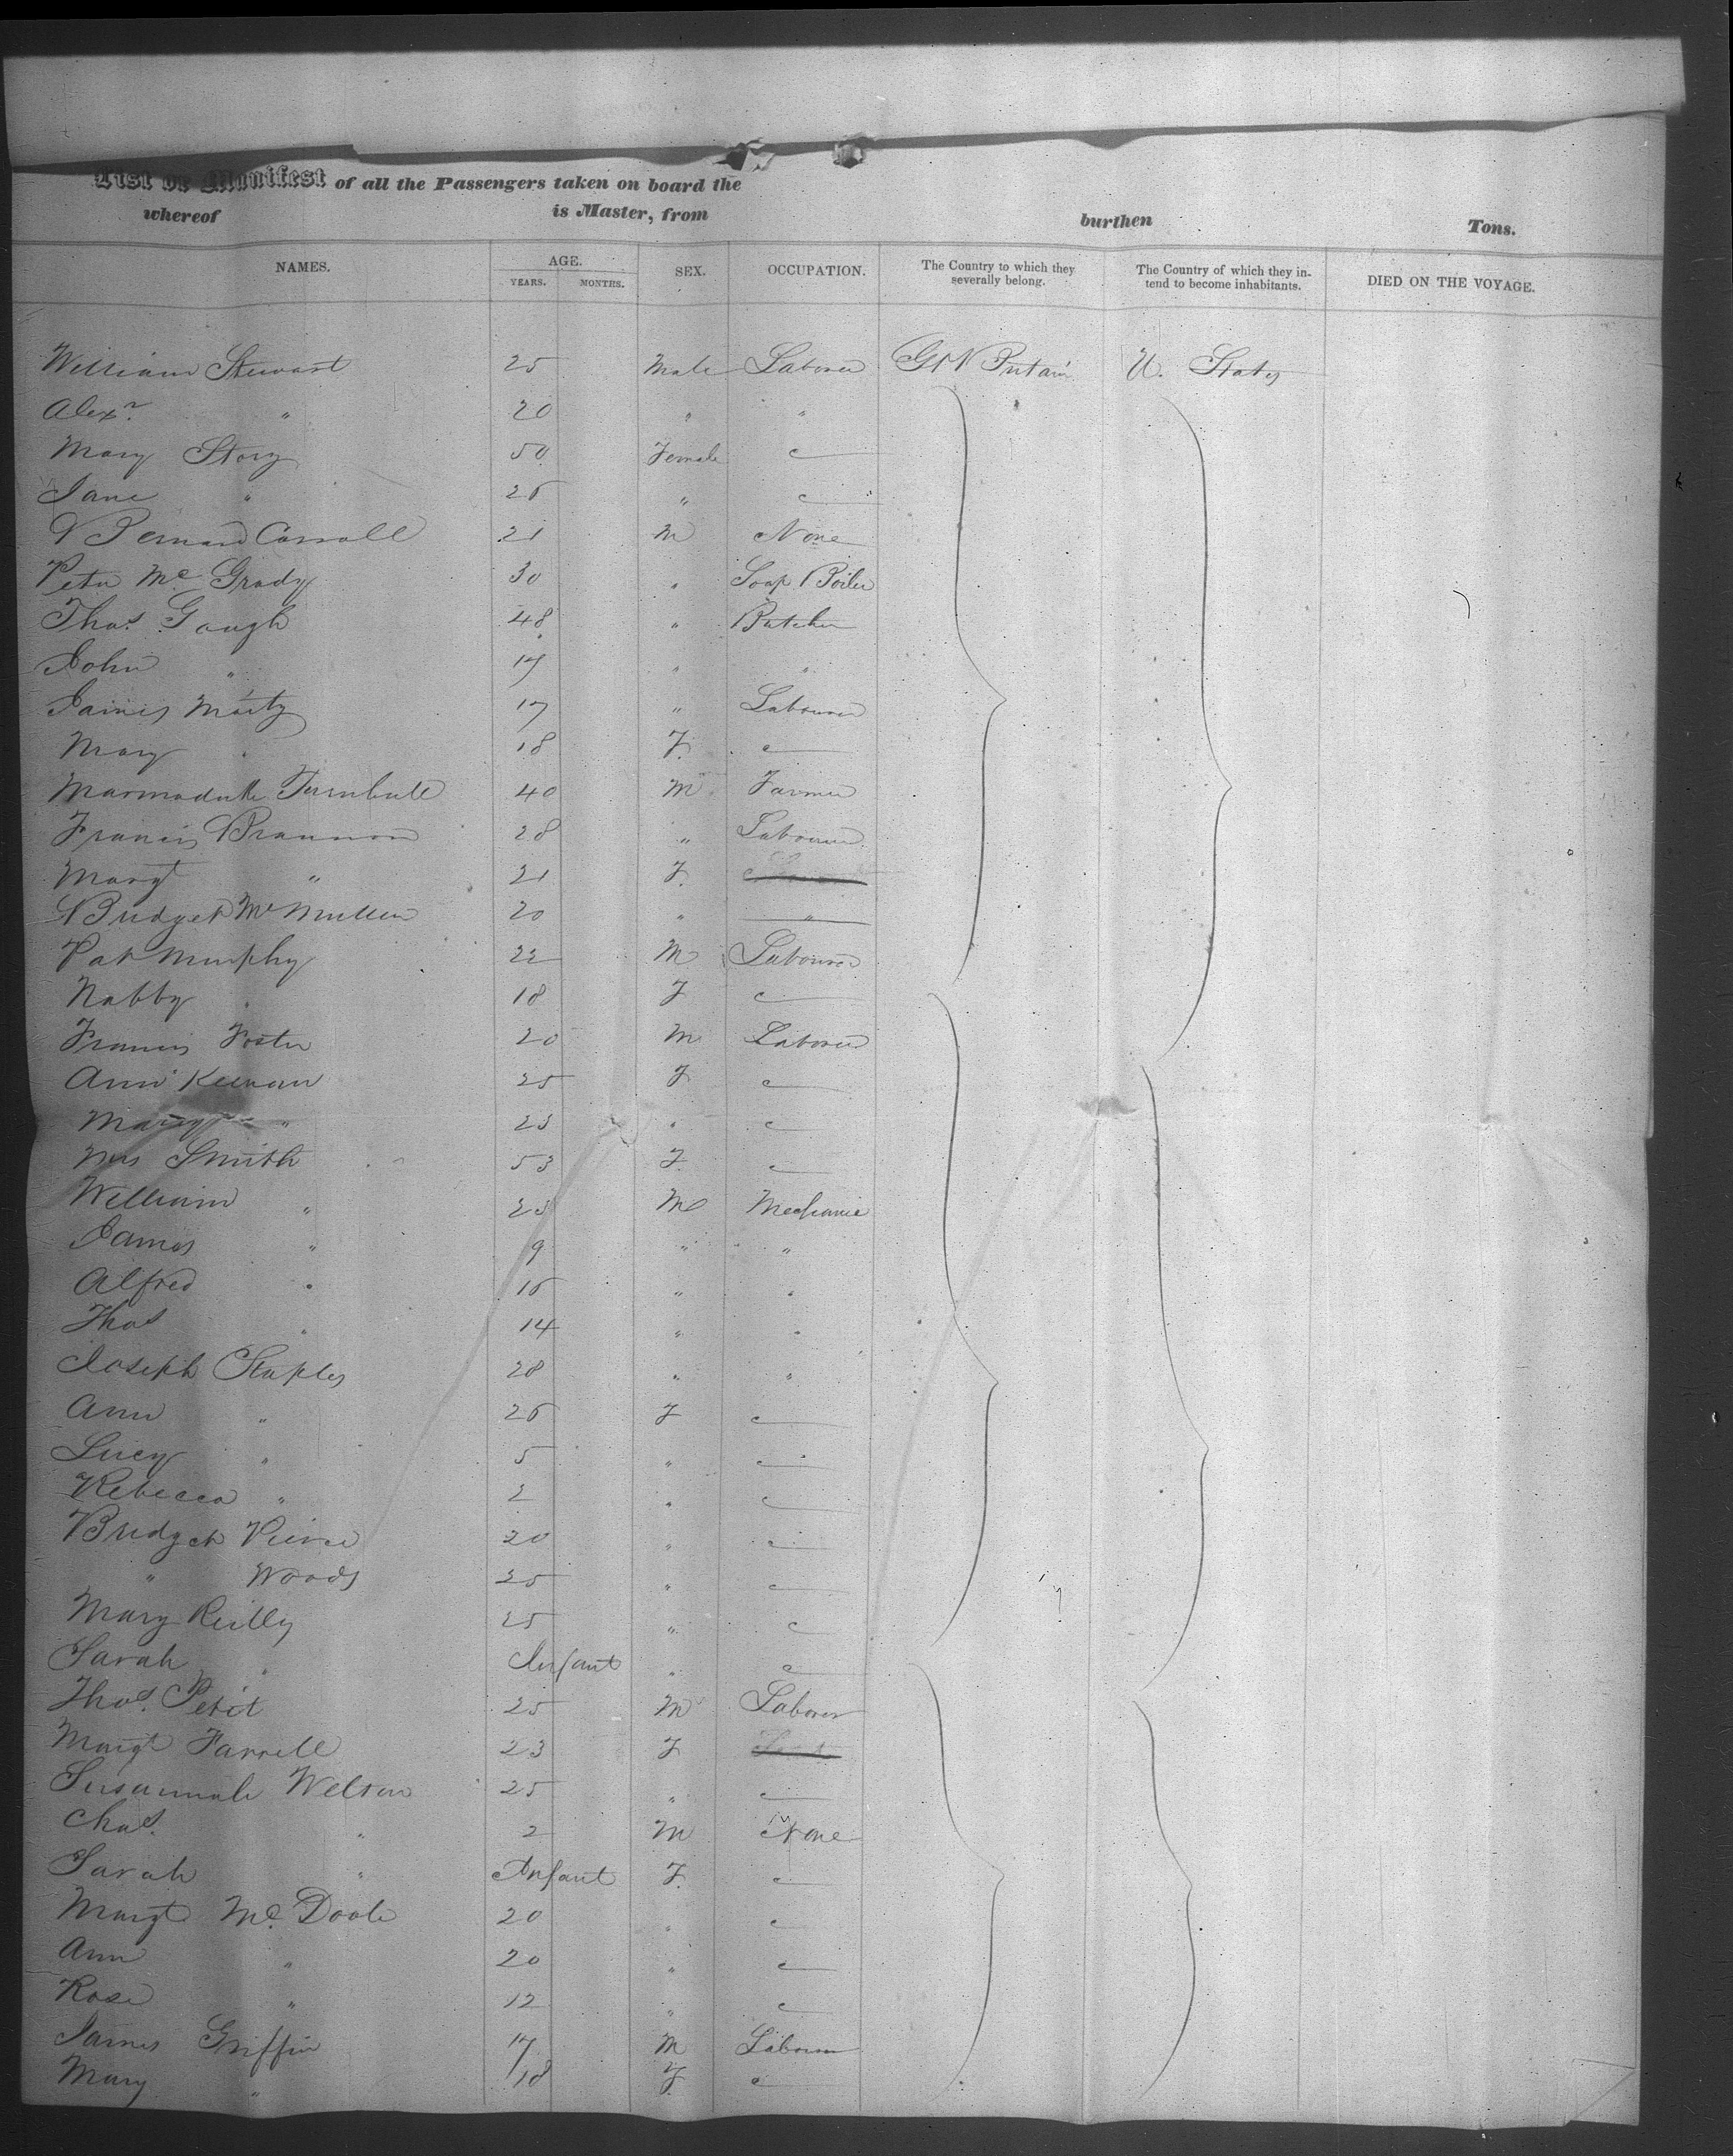 List or Manifest of all the Passengers taken on board the
whereof is Master, from burthen Tons.
NAMES. AGE. SEX. OCCUPATION. The Country to which they severally belong. The Country of which they intend to become inhabitants. DIED ON THE VOYAGE.
YEARS. MONTHS.
William Stewart 25 Male Laborer Gt Britain U. States
Alexr. " 20 " "
Mary Story 50 Female —
Jane " 26 " —
Bernard Carroll 21 M None
Peter Mc Grady 30 " Soap Boiler
Thos. Gough 48 " Butcher
John " 17 " "
James 17 " Labourer
Mary " 18 F. —
Marmaduke Turnbull 40 M Farmer
Francis Brannon 28 " Labourer
Margt " 21 F.
Bridget Mc Mullen 20 " "
Pat Murphy 22 M Labourer
Nabby " 18 F —
Francis Foster 20 M Laborer
Ann Keenan 25 F —
Mary " 23 " —
Mrs Smith 53 F. —
William " 23 M Mechanic
James " 9 " "
Alfred " 16 " "
Thos " 14 " "
Joseph Staples 28 " "
Ann " 26 F —
Lucy " 5 " —
Rebecca " 2 " —
Bridget Pierce 20 " —
" Woods 25 " —
Mary Reilly 25 " —
Sarah " Infant " —
Thos. Petit 25 M Laborer
Margt Farrell 23 F
Susannah Welson 25 " —
Chas. " 2 M None
Sarah " Infant F. —
Margt Mc. Doole 20 " —
Ann " 20 " —
Rose " 12 " —
James Griffin 17 M Labourer
Mary " 18 F —